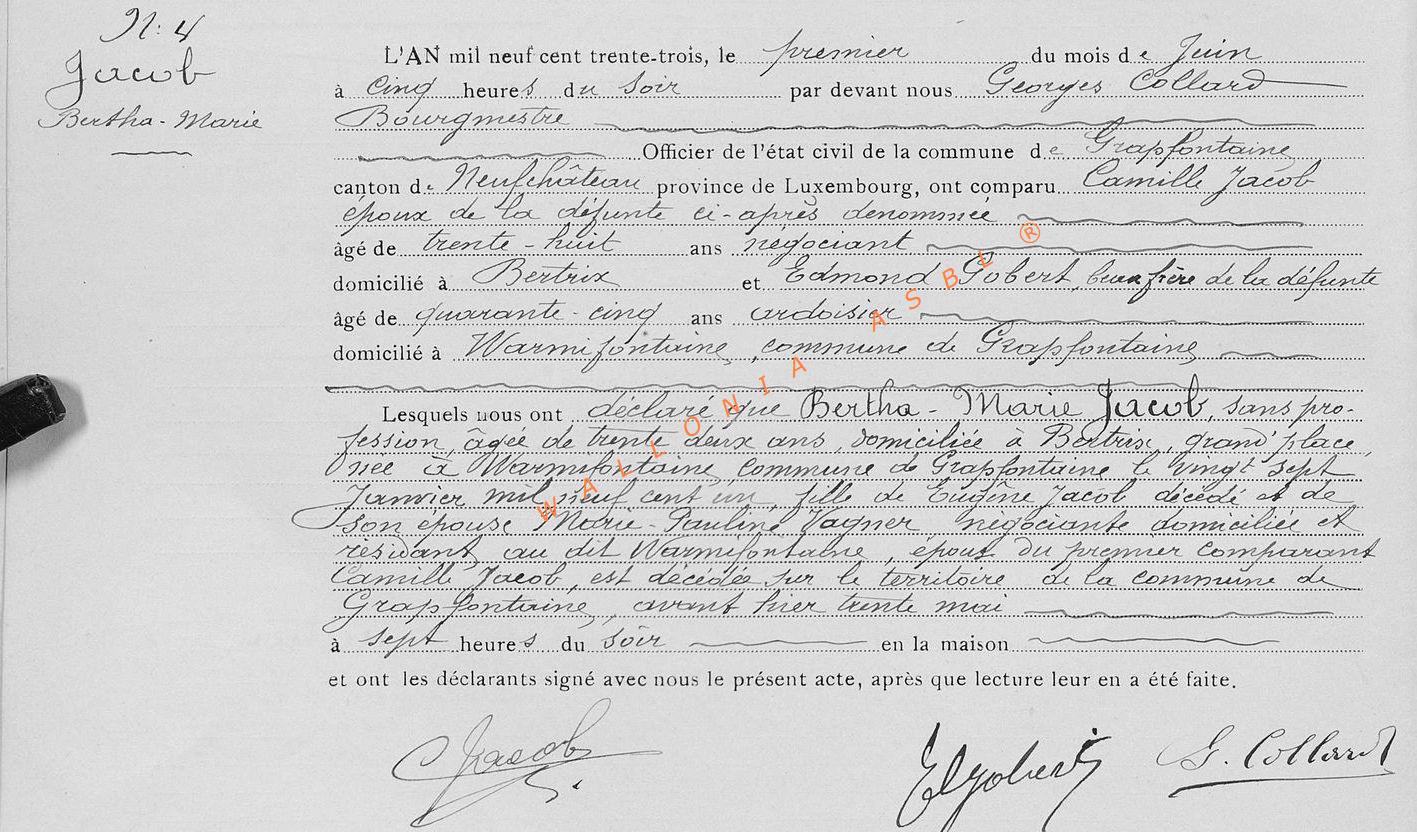 N: 4
Jacob
Bertha-Marie
L'AN mil neuf cent trente-trois, le premier du mois de Juin
à cinq heures du soir par devant nous Georges Collard
Bourgmestre
Officier de l'état civil de la commune de Grapfontaine
canton de Neufchâteau province de Luxembourg, ont comparu Camille Jacob
époux de la défunte ci-après dénommée
âgé de trente-huit ans négociant
domicilié à Bertrix et Edmond Gobert, beau frère de la défunte
âgé de quarante-cinq ans ardoisier
domicilié à Warmifontaine, commune de Grapfontaine
Lesquels nous ont déclaré que Bertha-Marie Jacob, sans pro-
fession, âgée de trente deux ans, domiciliée à Bertrix, grand'place
née à Warmifontaine, commune de Grapfontaine le vingt sept
Janvier mil neuf cent un, fille de Eugène Jacob décédé et de
son épouse Marie-Pauline Vagner, négociante domiciliée et
résidant au dit Warmifontaine, épouse du premier comparant
Camille Jacob, est décédée sur le territoire de la commune de
Grapfontaine, avant hier trente mai
à sept heures du soir en la maison
et ont les déclarants signé avec nous le présent acte, après que lecture leur en a été faite.
CJacob
EdGobert
G. Collard
WALLONIA ASBL ®